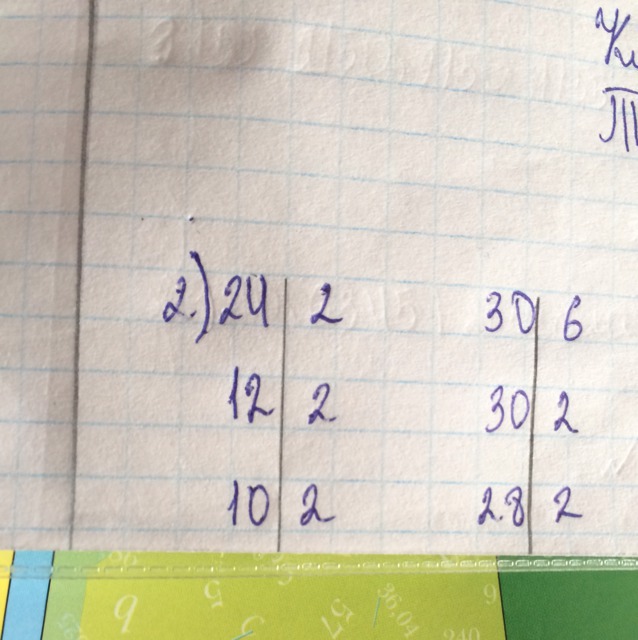 2.) 24 | 2 30 | 6
12 | 2 30 | 2
10 | 2 28 | 2